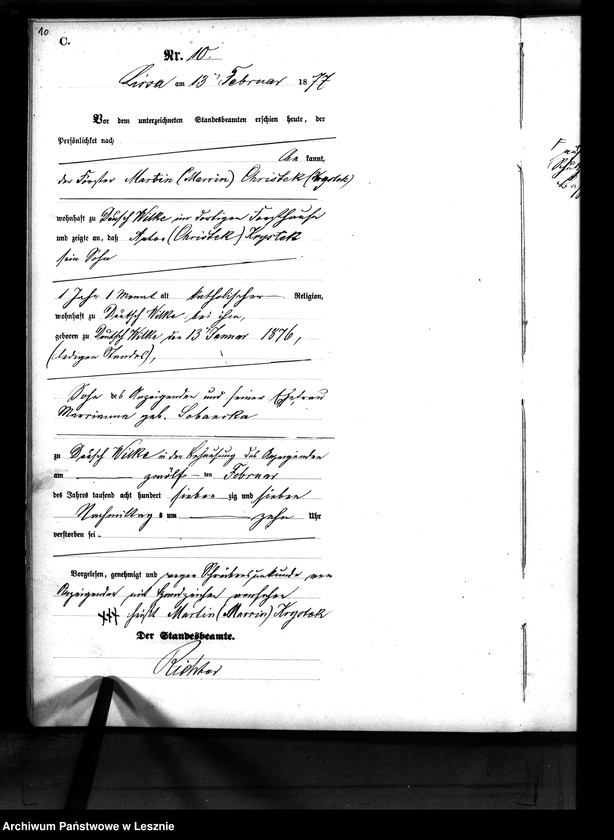 10
C.
Nr. 10.
Lissa am 13ten Februar 1877
Vor dem unterzeichneten Standesbeamten erschien heute, der
Persönlichkeit nach
kannt,
der Förster Martin (Marcin) Christek (Krystek)
wohnhaft zu Deutsch Wilke im dortigen Forsthause
und zeigte an, daß Anton (Christek) Krystek
sein Sohn
1 Jahr 1 Monat alt katholischer Religion,
wohnhaft zu Deutsch Wilke bei ihm,
geboren zu Deutsch Wilke den 13ten Januar 1876,
(ledigen Standes),
Sohn des Anzeigenden und seiner Ehefrau
Marrianna geb.
zu Deutsch Wilke in der Behausung des Anzeigenden
am zwölf ten Februar
des Jahres tausend acht hundert sieben zig und sieben
Nachmittags um zehn Uhr
verstorben sei.
Vorgelesen, genehmigt und wegen Schreibensunkunde vom
Anzeigenden mit Handzeichen versehen
+++ heißt Martin (Marcin) Krystek
Der Standesbeamte.
Richter
Archiwum Państwowe w Lesznie